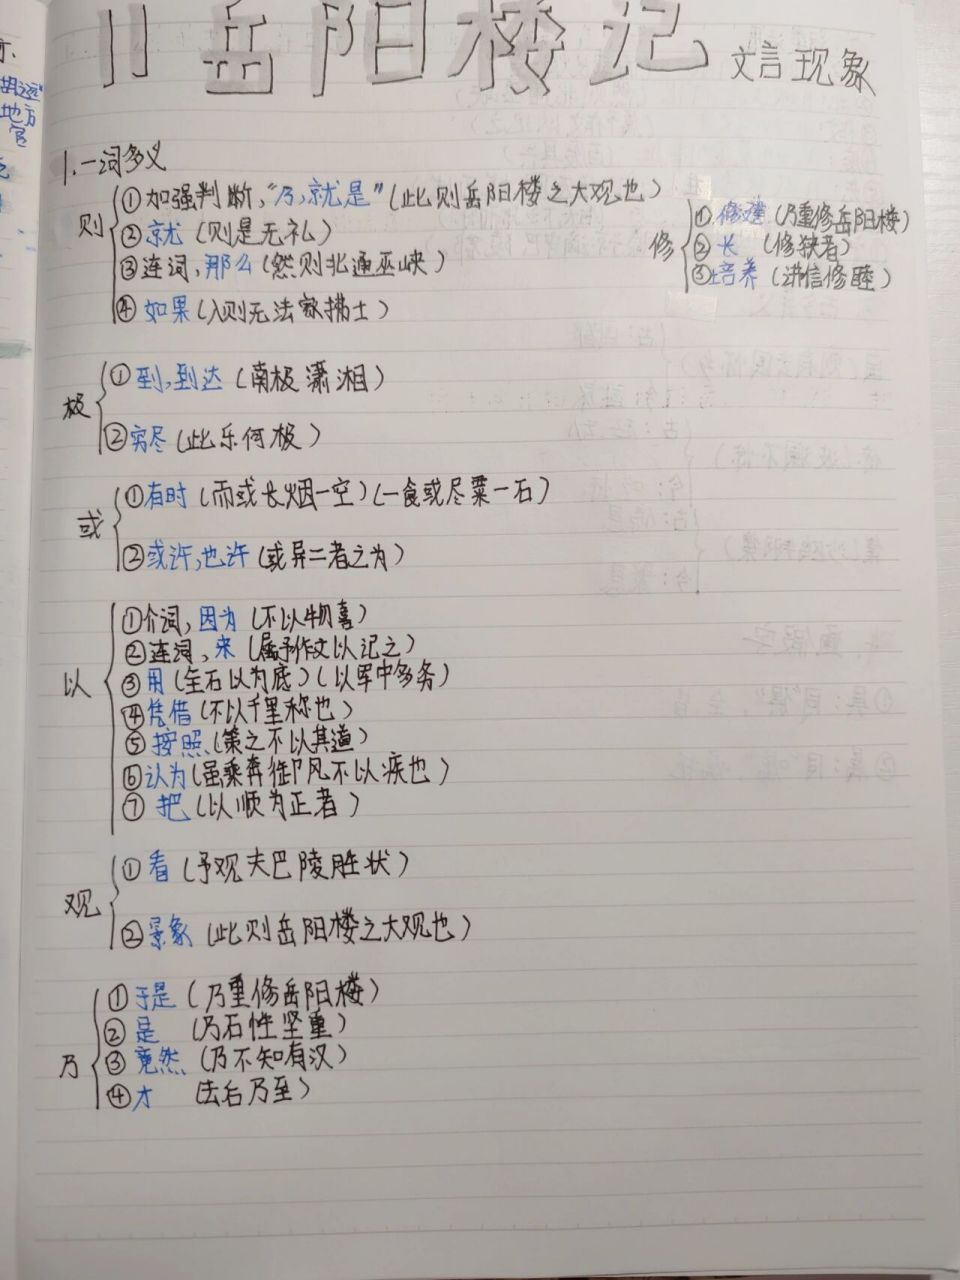 11 岳阳楼记 文言现象
1.一词多义
则
①加强判断,“乃,就是”(此则岳阳楼之大观也)
②就 (则是无礼)
③连词,那么(然则北通巫峡)
④如果(入则无法家拂士)
修
①修建(乃重修岳阳楼)
②长 (修狭者)
③培养(讲信修睦)
极
①到,到达(南极潇湘)
②穷尽(此乐何极)
或
①有时(而或长烟一空)(一食或尽粟一石)
②或许,也许(或异二者之为)
以
①介词,因为(不以物喜)
②连词,来(属予作文以记之)
③用(全石以为底)(以军中多务)
④凭借(不以千里称也)
⑤按照(策之不以其道)
⑥认为(虽乘奔御风不以疾也)
⑦把(以顺为正者)
观
①看(予观夫巴陵胜状)
②景象(此则岳阳楼之大观也)
乃
①于是(乃重修岳阳楼)
②是 (乃石性坚重)
③竟然(乃不知有汉)
④才 (去后乃至)